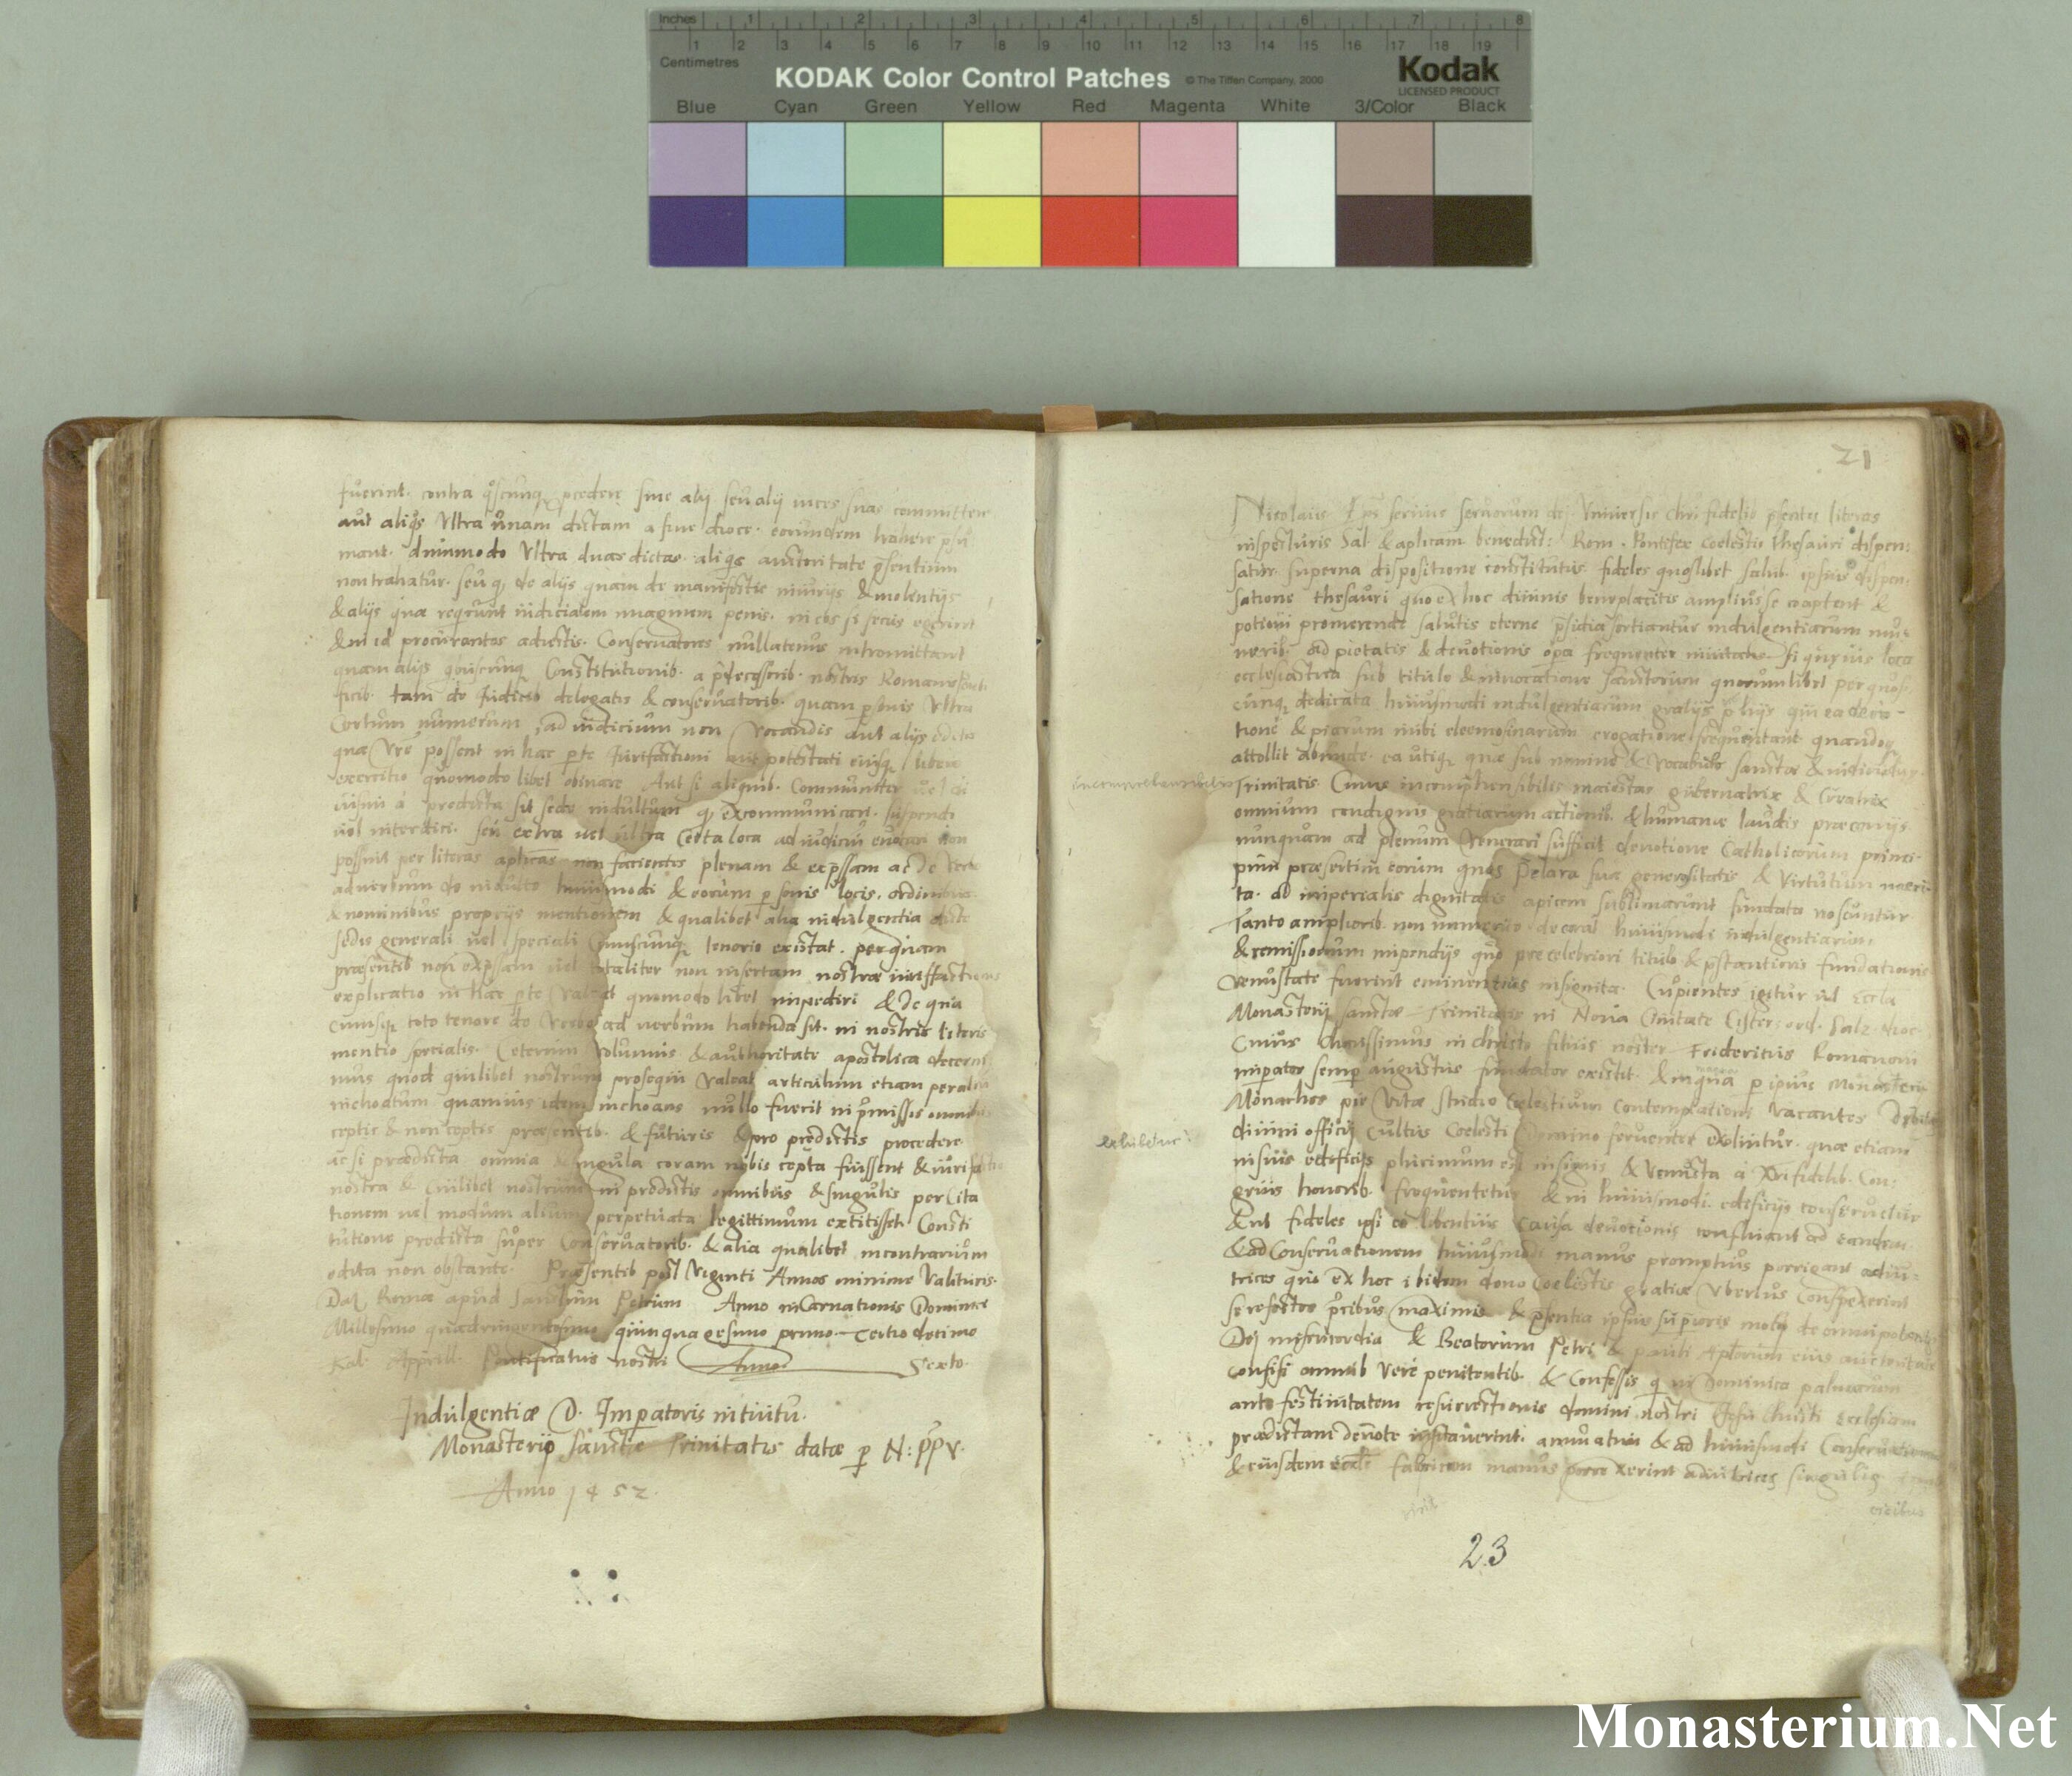 Inches 1 2 3 4 5 6 7 8
1 2 3 4 5 6 7 8 9 10 11 12 13 14 15 16 17 18 19
Centimetres
KODAK Color Control Patches © The Tiffen Company, 2000 Kodak
LICENSED PRODUCT
Blue Cyan Green Yellow Red Magenta White 3/Color Black
fuerint. contra procedere sine alij seu alij vices suas committere
aut aliqs Ultra unam dictam a fine dioce. eorundem trahere
mant. dummodo Ultra duas dictas aliqs auctoritate psentium
non trahatur. seu de alijs quam de manifestis iniurijs & violentijs
& alijs quæ requrunt iudicialem penis. in eos si secus egerint
& in id procurantes adiectis. Conservatores nullatenus intromittant
quam alijs quibuscunq Constitutionib. a predecessorib. nostris Romanis
ficib. tam de Iudicib delegatis & conservatorib. quam psonis Ultra
Certum numerum, ad iudicium non Vocandis aut alijs editis
quæ possent in hac pte Iurisdictioni aut potestati eiusq libero
exercitio quomodo libet obviare Aut si aliquib. Communiter vel di
uisim a prædicta sit sede indultum excommunicari. suspendi
uel interdici. seu extra uel ultra Certa loca ad iudiciu euocari non
possint per literas aplicas non facientes plenam & expssam ac De Verbo
ad verbum de indulto huiusmodi & eorum psonis locis. ordinibus
& nominibus proprijs mentionem & qualibet alia indulgentia dicte
sedis generali uel speciali Cuiuscunq tenoris existat. per quam
præsentib non expssam uel totaliter non insertam nostræ iurisdictionis
explicatio in hac pte Valeat quomodo libet impediri & De qua
Cuiusq toto tenore de Verbo ad uerbum habenda sit. in nostris literis
mentio specialis. Ceterum Volumus & authoritate apostolica decerni
mus quod quilibet nostrum prosequi Valeat articulum etiam per alium
inchoatum quamuis idem inchoans nullo fuerit in pmissis
ceptis & non ceptis præsentib. & futuris & pro predictis procedere
ac si prædicta omnia & singula coram nobis cepta fuissent & iurisdictio
nostra & Cuilibet nostrum in predictis omnibus & singulis per Cita
tionem uel modum alium perpetuata legittimum extitisset. Consti
tutione predicta super Conservatorib. & alia qualibet incontrarium
edita non obstante. Præsentib post Viginti Annos minime Valituris.
Dat Romæ apud Sanctum Petrum Anno inCarnationis Dominicæ
Millesimo quadringentesimo quinquagesimo primo. Tertio decimo
Kal. Aprill. Pontificatus nostri Anno Sexto.
Indulgentiæ D. Imperatoris intuitu.
Monasterij Sanctæ Trinitatis datæ p N: ppv.
Anno 1452.
21
Nicolaus Eps servus servorum dei Vniversis chri fidelib psentes literas
inspecturis Sal. & aplicam benedict: Rom. Pontifex Coelestis thesauri dispen:
sator. superna dispositione constitutus. fideles quoslibet salub. ipsius dispen:
satione thesauri quo ex hoc diuinis beneplacitis amplius se coaptent &
potiori promerende salutis eterne psidia sortiantur indulgentiarum mu:
nerib. ad pietatis & deuotionis opa frequenter inuitat. si quiuis loca
ecclesiastica sub titulo & inuocatione sanctorum quorumlibet per quos
cunq dedicata huiusmodi indulgentiarum gratijs qui ea deuo-
tione & piarum inibi eleemosinarum erogatione frequentant quandoq
attollit abunde. ea utiq quæ sub nomine & vocabulo sanctæ & indiuiduæ
Trinitatis. Cuius incomphensibilis maiestas gubernatrix & Creatrix
omnium condignis gratiarum actionib. & humanæ laudis præconijs
nunquam ad plenum Venerari sufficit deuotione Catholicorum princi-
pum præsertim eorum quos Pclara suæ generositatis & Virtutum meri-
ta. ad imperialis dignitatis apicem sublimarunt fundata noscuntur
Tanto amplioribus non immerito decorat huiusmodi indulgentiarum,
& remissionum impendijs quo præcelebriori titulo & pstantioris fundationis
Venustate fuerint eminentius insignita. Cupientes igitur ut Eccla
Monasterij Sanctæ Trinitatis in Noua Ciuitate Cister: ord. Salz. dioc.
Cuius Charissimus in christo filius noster Fridericus Romanorum
imperator semp augustus fundator existit. & inqua p ipsius Monasterij
Monachos piæ Vitæ studio Coelestium Contemplationi Vacantes Debitus
diuini officij Cultus Coelesti Domino feruenter quæ etiam
exhibetur.
in suis edificijs plurimum est insignis & Venusta à Xpi fidelib. Con:
gruis honorib. frequentetur & in huiusmodi. edificijs conseruetur
& ut fideles ipsi eo libentius Causa deuotionis confluant ad eandem
& ad Conseruationem huiusmodi manus promptius porrigant adiu:
trices quo ex hoc ibidem dono Coelestis gratiæ Vberius Conspexerint
se refectos
Dei misericordia & Beatorum Petri & pauli Aplorum eius auctoritate
confisi omnib vere penitentib. & Confessis qui in Dominica palmarum
ante festiuitatem resurrectionis domini nostri Jesu Christi ecclesiam
prædictam deuote uisitauerint. annuatim & ad huiusmodi Conseruationem
& eiusdem eccle fabricam manus porrexerint adiutrices singulis
23
Monasterium.Net